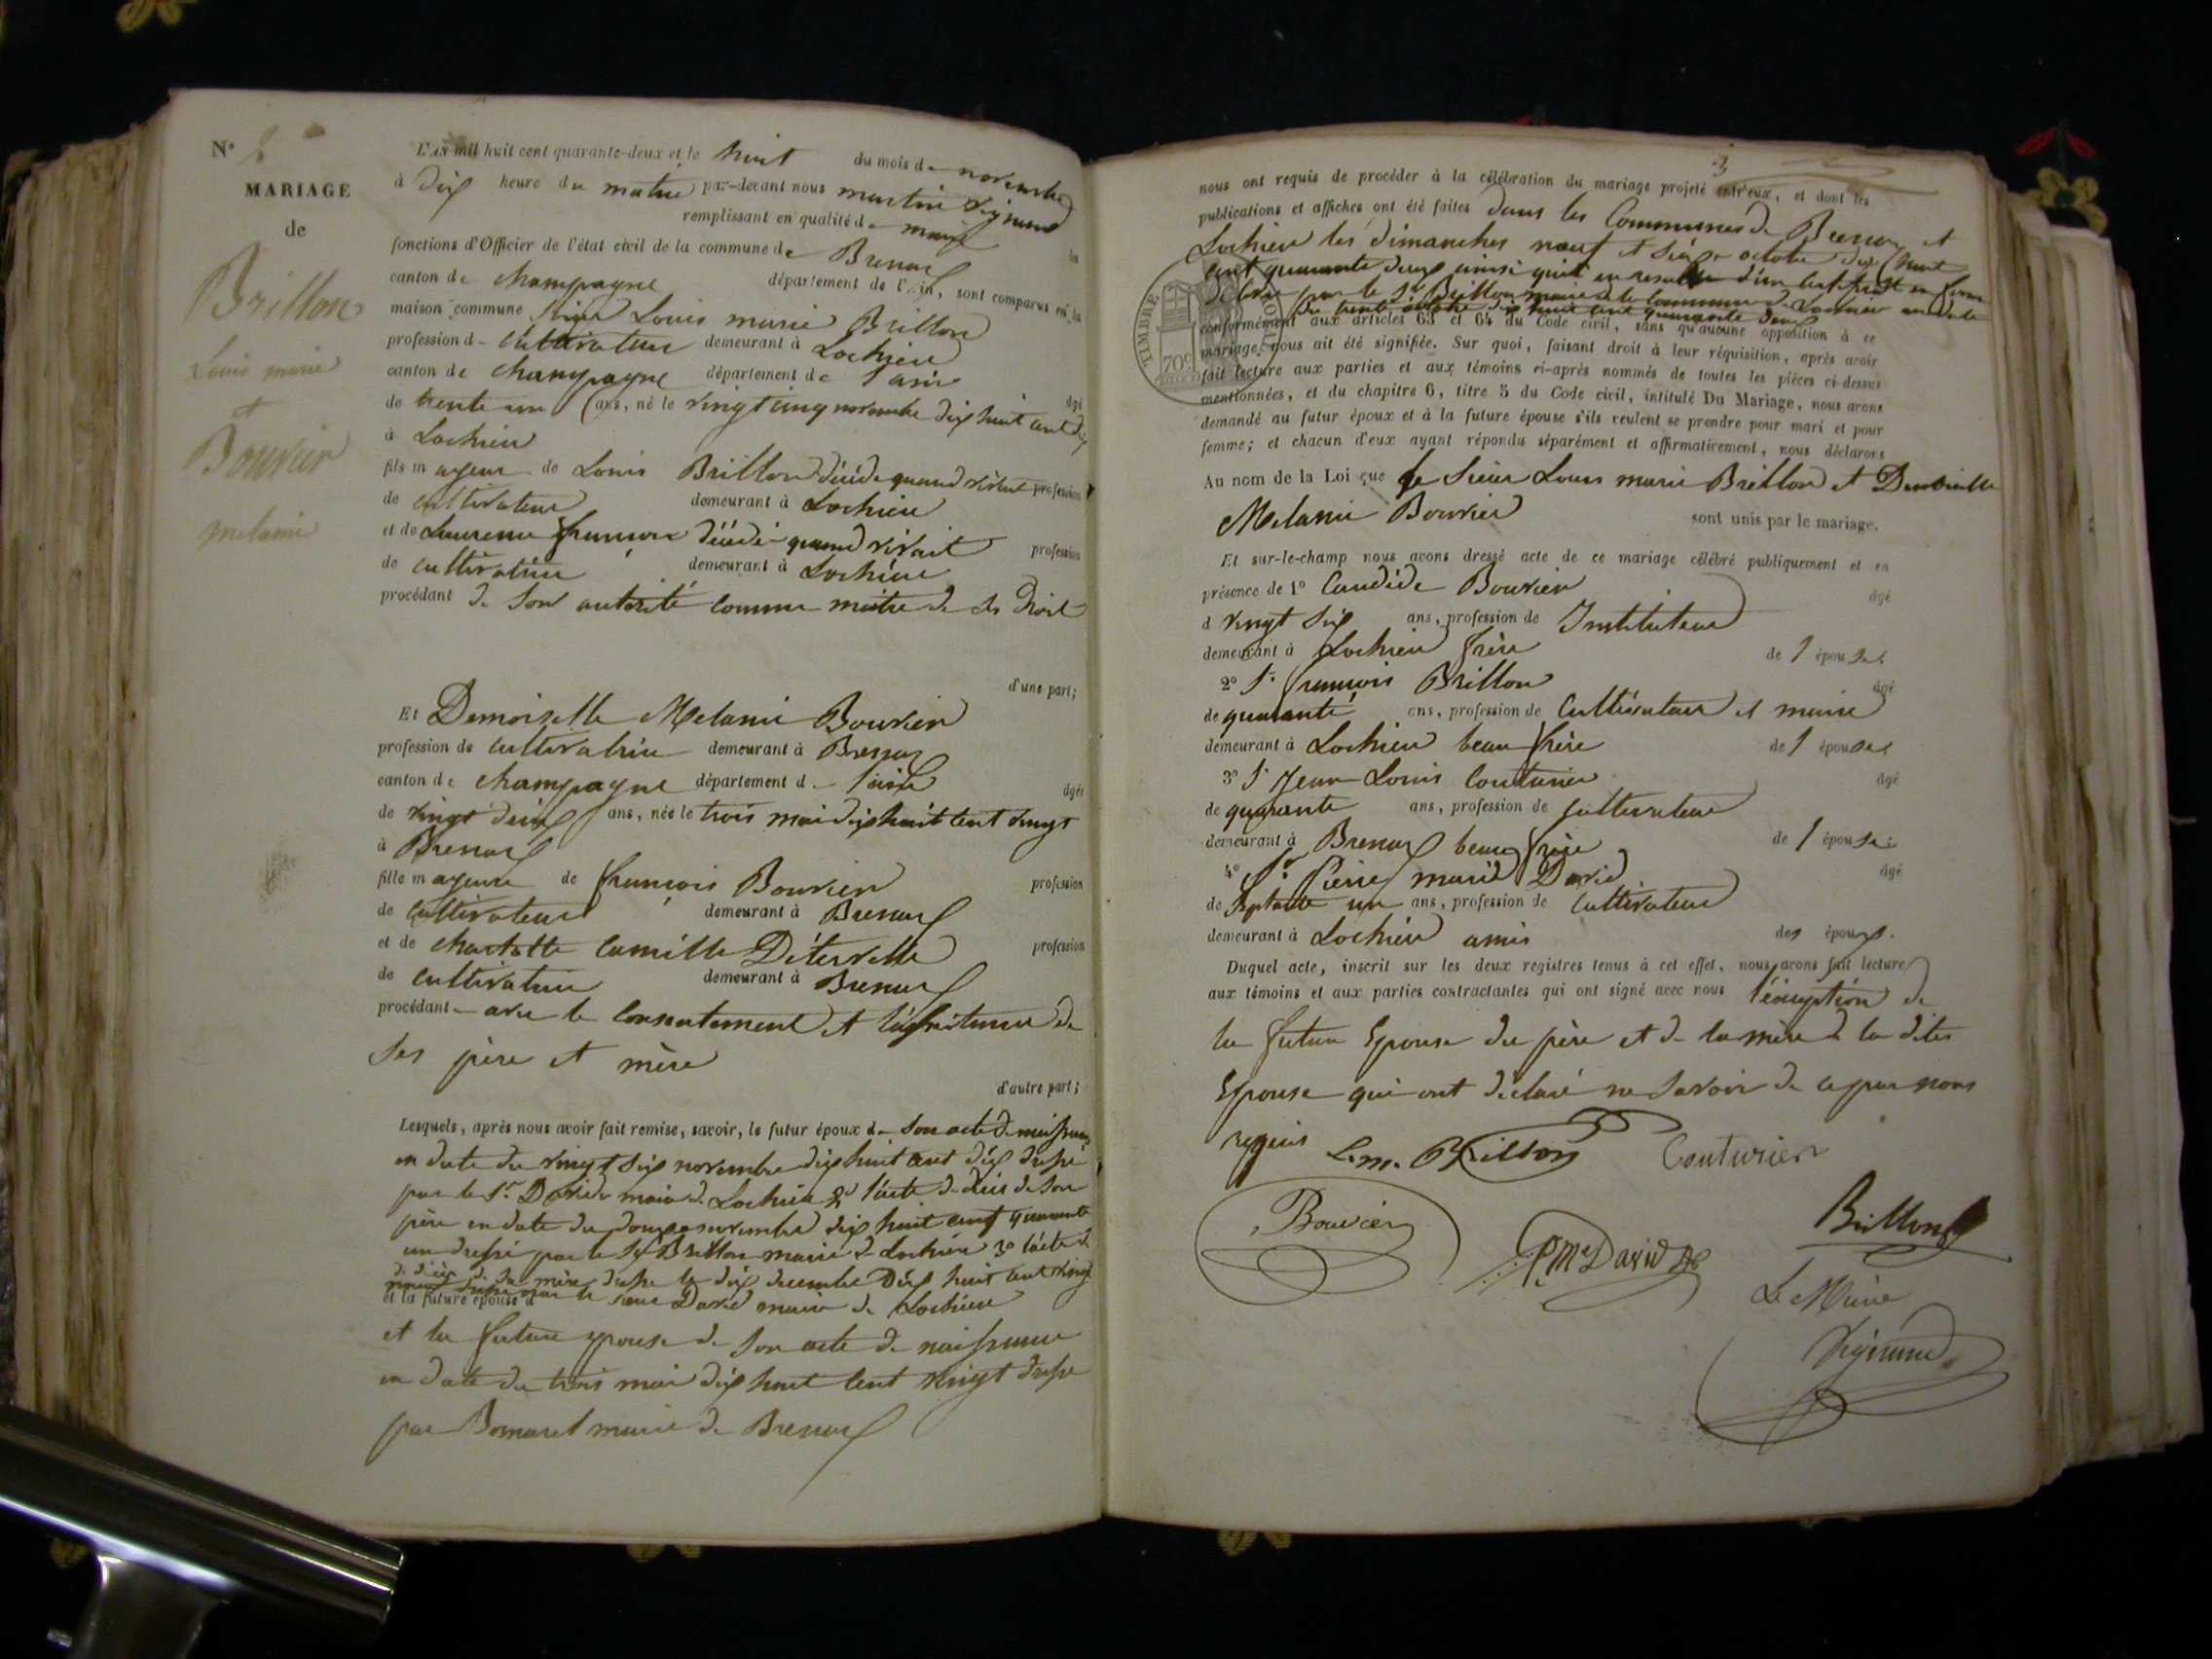 N° 2
MARIAGE
de
Brillon
Louis marie
et
Bouvier
melanie
L'an mil huit cent quarante-deux et le huit du mois de novembre
à dix heure du matin par-devant nous martin
remplissant en qualité de maire les
fonctions d'Officier de l'état civil de la commune de Brenaz
canton de champagne département de l'Ain, sont comparus en la
maison commune Sieur Louis marie Brillon
profession de Cultivateur demeurant à Lochieu
canton de champagne département de l'ain âgé
de trente un ans, né le vingt cinq novembre dix huit cent dix
à Lochieu
fils mayeur de Louis Brillon décédé quand vivait profession
de cultivateur demeurant à Lochieu
et de Laurence françoise décédée quand vivait profession
de cultivatrice demeurant à Lochieu
procédant de son autorité comme maitre de ses droit
d'une part;
Et Demoiselle Melanie Bouvier
profession de cultivatrice demeurant à Brenaz
canton de champagne département de l'ain âgée
de vingt deux ans, née le trois mai dix huit cent vingt
à Brenaz
fille mayeure de françois Bouvier profession
de cultivateur demeurant à Brenaz
et de charlotte Camille Déterville profession
de cultivatrice demeurant à Brenaz
procédant avec le consentement et l'assistance de
ses père et mère
d'autre part;
Lesquels, après nous avoir fait remise, savoir, le futur époux de son acte de naissance
en date du vingt six novembre dix huit cent dix dressé
par le Sr David maire de Lochieu 2° l'acte de décès de son
père en date du douze novembre dix huit cent quarante
un dressé par le Sr Brillon maire de Lochieu 3° l'acte de
décès de sa mère dressé le dix decembre dix huit cent vingt
et la future épouse d
par le sieur David maire de Lochieu
et la future epouse de son acte de naissance
en date du trois mai dix huit cent vingt dressé
par Bornaret maire de Brenaz
3
nous ont requis de procéder à la célébration du mariage projeté entr'eux, et dont les
publications et affiches ont été faites dans les Communes de Brenaz et
Lochieu les dimanches neuf et seize octobre dix huit
cent quarante deux ainsi qu'il en resulte d'un certificat en forme
délivré par le Sr Brillon maire de la commune de Lochieu en date
du trente octobre dix huit cent quarante deux
TIMBRE
70c
conformément aux articles 63 et 64 du Code civil, sans qu'aucune opposition à ce
mariage nous ait été signifiée. Sur quoi, faisant droit à leur réquisition, après avoir
fait lecture aux parties et aux témoins ci-après nommés de toutes les pièces ci-dessus
mentionnées, et du chapitre 6, titre 5 du Code civil, intitulé Du Mariage, nous avons
demandé au futur époux et à la future épouse s'ils veulent se prendre pour mari et pour
femme; et chacun d'eux ayant répondu séparément et affirmativement, nous déclarons
Au nom de la Loi que le Sieur Louis marie Brillon et Demoiselle
Melanie Bouvier sont unis par le mariage.
Et sur-le-champ nous avons dressé acte de ce mariage célébré publiquement et en
présence de 1° Candide Bouvier âgé
d vingt six ans, profession de Instituteur
demeurant à Lochieu frère de l'épouse.
2° Sr françois Brillon âgé
de quarante ans, profession de Cultivateur et maire
demeurant à Lochieu beau frère de l'épouse
3° Sr Jean Louis Couturier âgé
de quarante ans, profession de Cultivateur
demeurant à Brenaz beau frère de l'épouse
4° Sr Pierre marie David âgé
de Septante un ans, profession de Cultivateur
demeurant à Lochieu amis des époux.
Duquel acte, inscrit sur les deux registres tenus à cet effet, nous avons fait lecture
aux témoins et aux parties contractantes qui ont signé avec nous l'éxception de
la future Epouse du père et de la mère de la dite
Epouse qui ont déclaré ne savoir de ce par nous
requis L.m. Brillon Couturier
Bouvier P. Me David Brillon
Le Maire